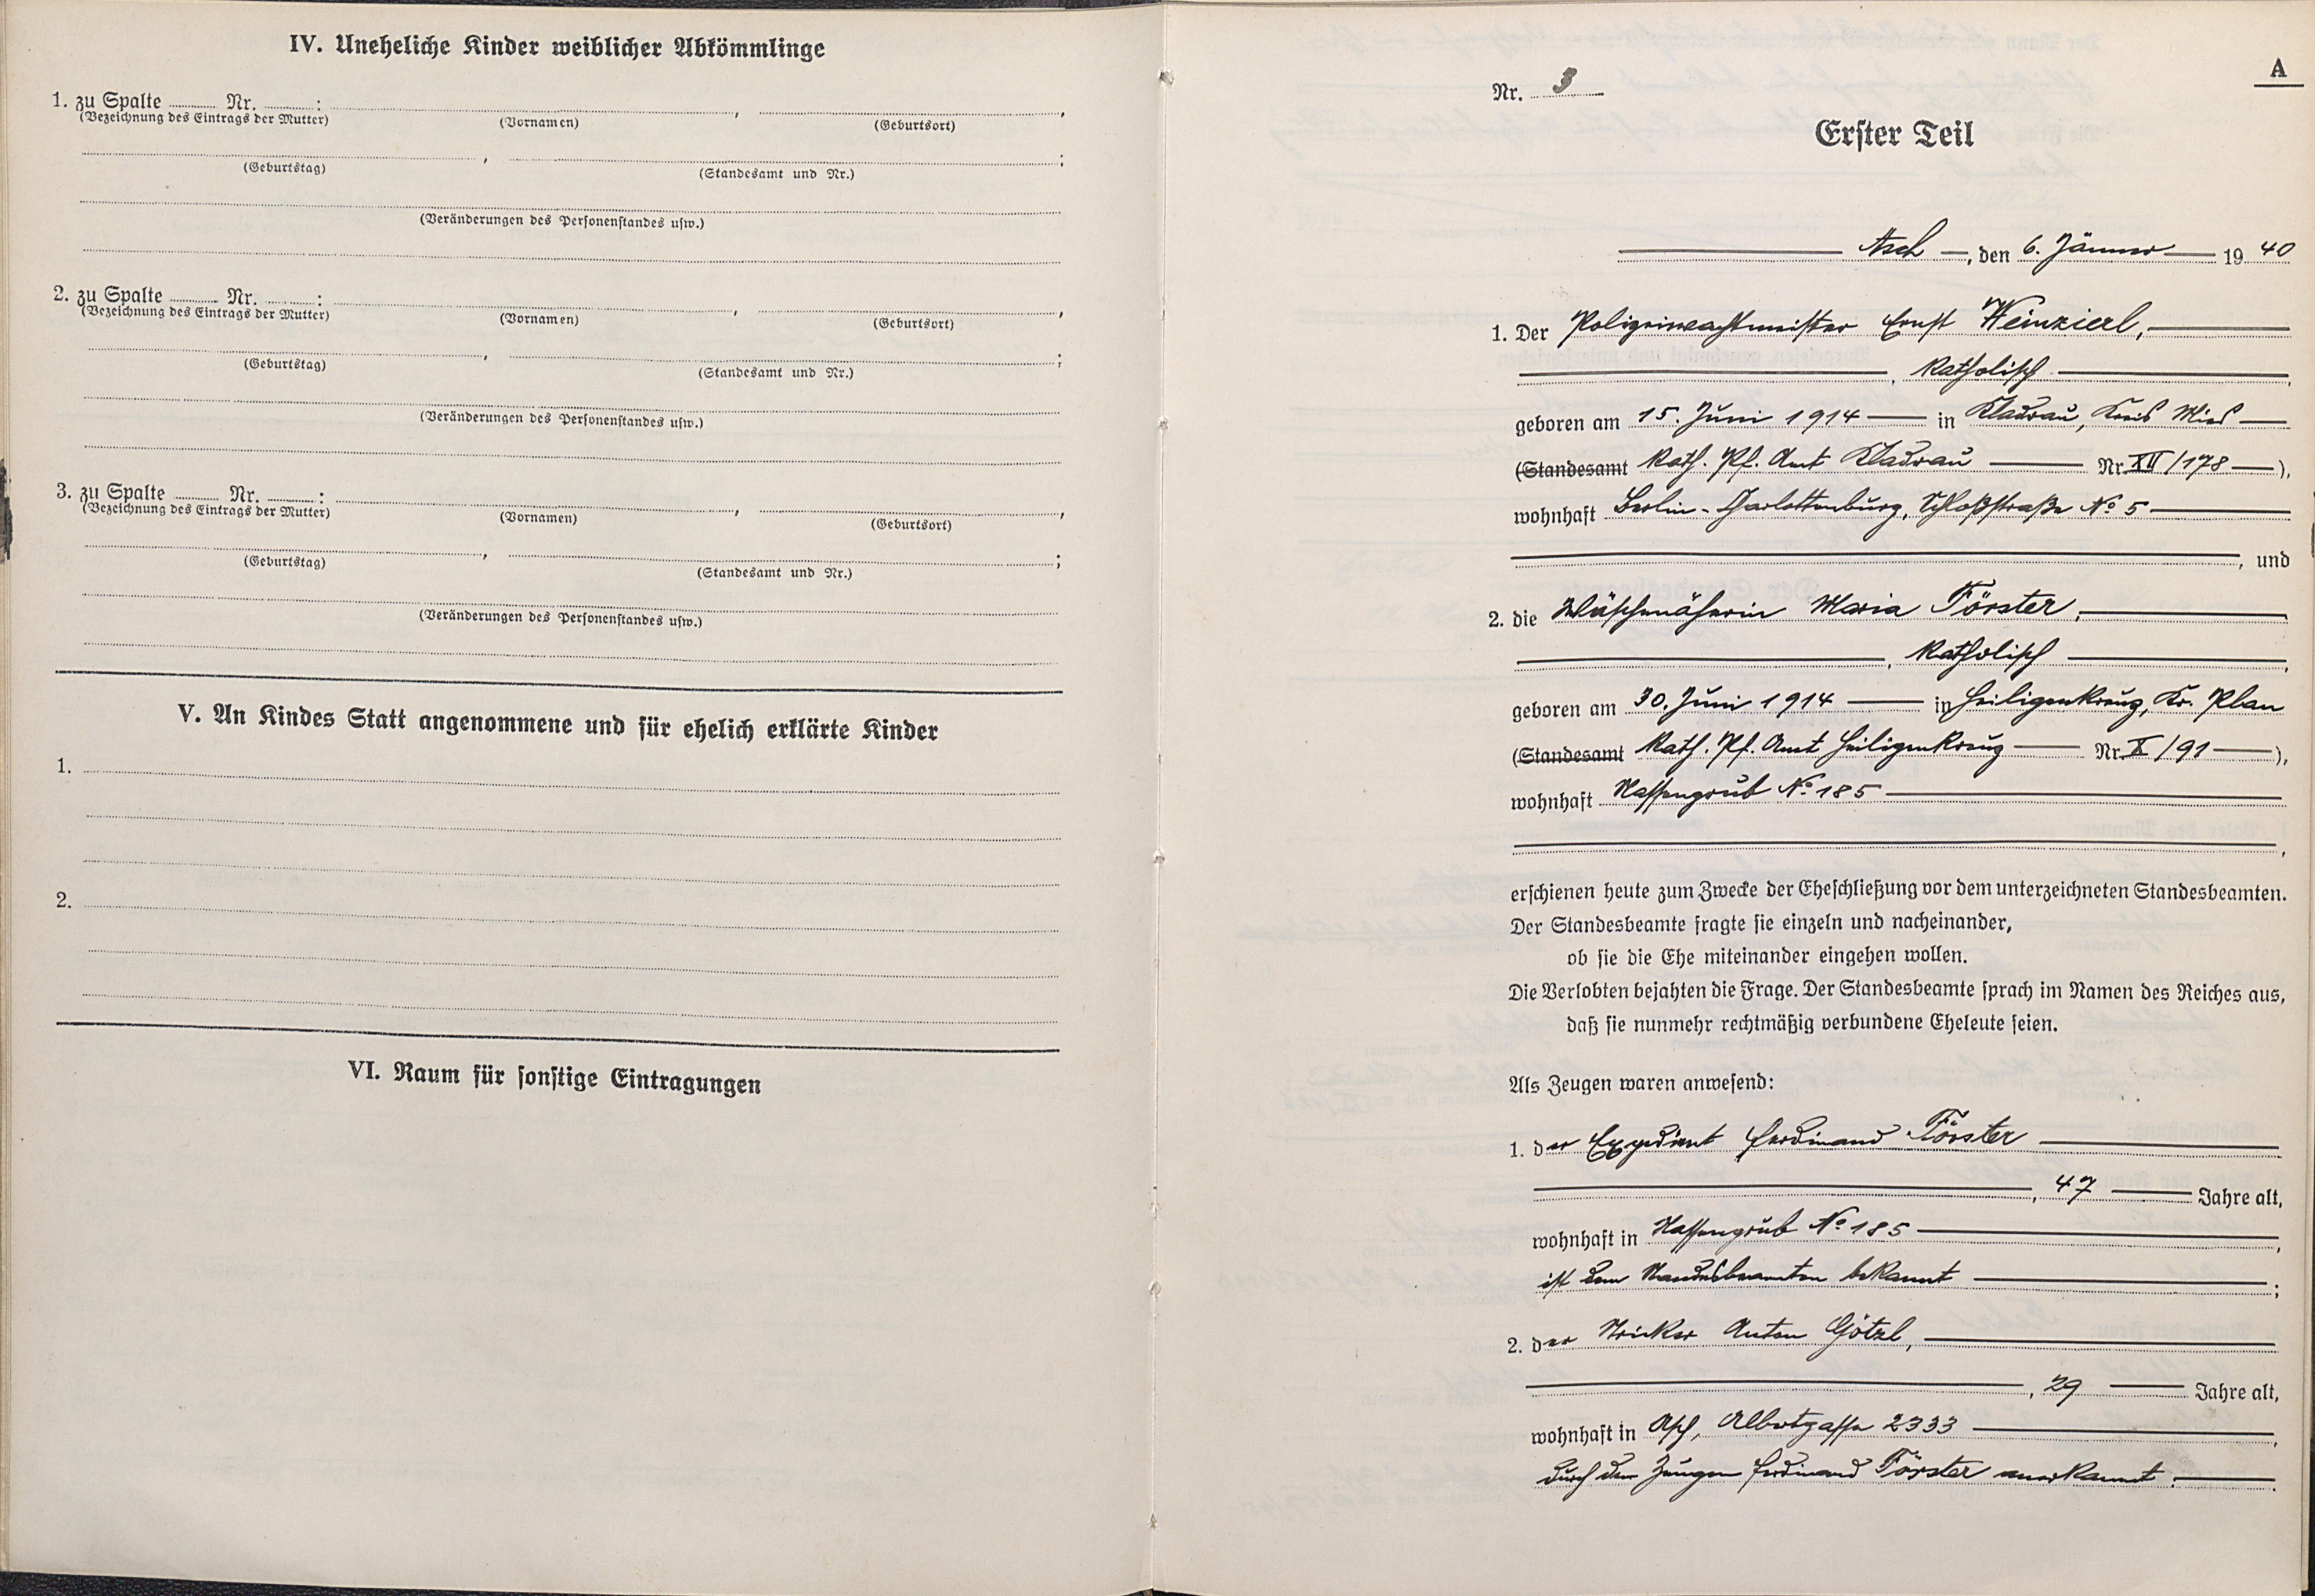 IV. Uneheliche Kinder weiblicher Abkömmlinge
1. zu Spalte ........ Nr. ........ :
(Bezeichnung des Eintrags der Mutter) (Vornamen) , (Geburtsort) ,
(Geburtstag) , (Standesamt und Nr.) ;
(Veränderungen des Personenstandes usw.)
2. zu Spalte ........ Nr. ........ :
(Bezeichnung des Eintrags der Mutter) (Vornamen) , (Geburtsort) ,
(Geburtstag) , (Standesamt und Nr.) ;
(Veränderungen des Personenstandes usw.)
3. zu Spalte ........ Nr. ........ :
(Bezeichnung des Eintrags der Mutter) (Vornamen) , (Geburtsort) ,
(Geburtstag) , (Standesamt und Nr.) ;
(Veränderungen des Personenstandes usw.)
V. An Kindes Statt angenommene und für ehelich erklärte Kinder
1.
2.
VI. Raum für sonstige Eintragungen
A
Nr. 3
Erster Teil
Asch, den 6. Jänner 1940
1. Der Polizeiwachtmeister Ernst Weinzierl,
, katholisch ,
geboren am 15. Juni 1914 in Kladrau, Kreis Mies
(Standesamt Kath. Pf. Amt Kladrau Nr. XII/178),
wohnhaft Berlin-Charlottenburg, Schloßstraße No 5
, und
2. die Wäschenäherin Maria Förster,
, katholisch ,
geboren am 30. Juni 1914 in Heiligenkreuz, Kr. Plan
(Standesamt Kath. Pf. Amt Heiligenkreuz Nr. X/91),
wohnhaft Hassengrub No 185
,
erschienen heute zum Zwecke der Eheschließung vor dem unterzeichneten Standesbeamten.
Der Standesbeamte fragte sie einzeln und nacheinander,
ob sie die Ehe miteinander eingehen wollen.
Die Verlobten bejahten die Frage. Der Standesbeamte sprach im Namen des Reiches aus,
daß sie nunmehr rechtmäßig verbundene Eheleute seien.
Als Zeugen waren anwesend:
1. der Expedient Ferdinand Förster
, 47 Jahre alt,
wohnhaft in Hassengrub No 185 ,
ist dem Standesbeamten bekannt ;
2. der Stricker Anton Götzl,
, 29 Jahre alt,
wohnhaft in Asch, Albertgasse 2333 ,
durch den Zeugen Ferdinand Förster anerkannt.